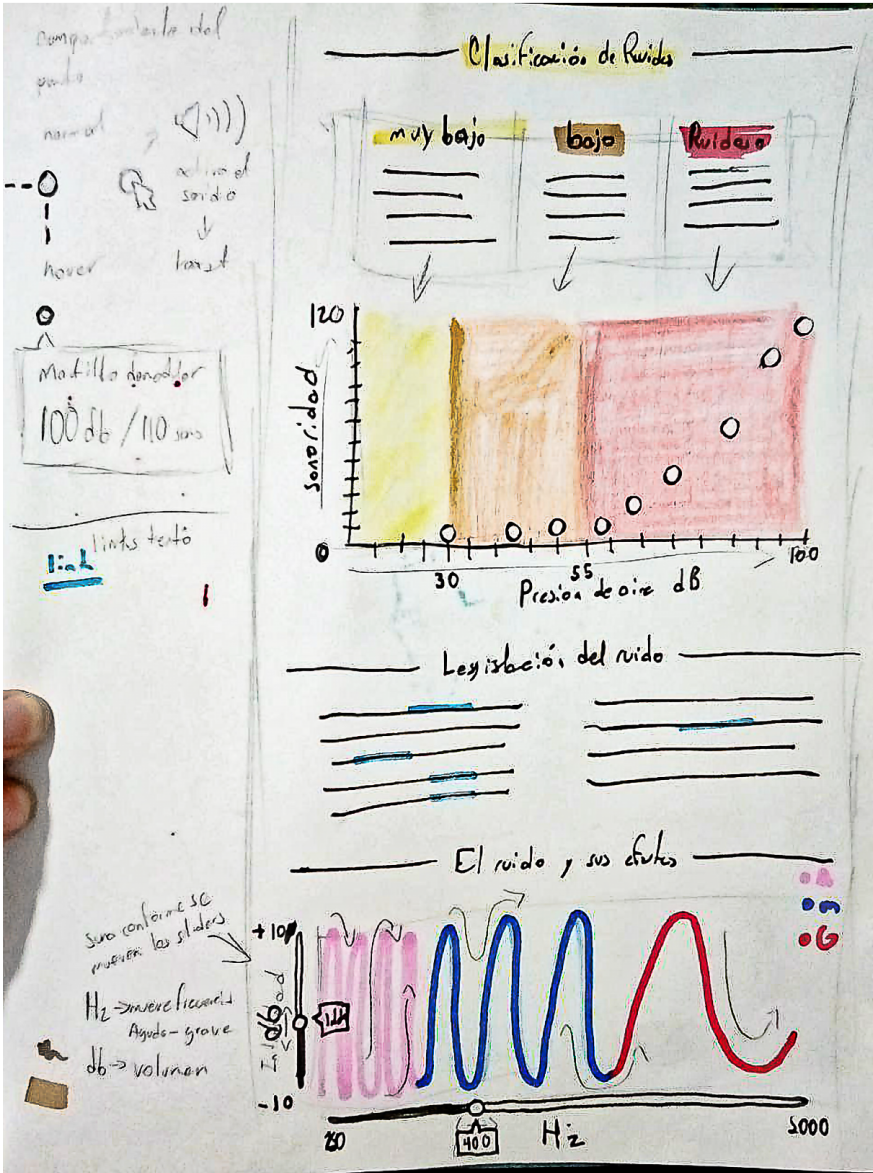 comportamiento del
punto
normal
activa el
sonido
hover
Martillo demoledor
100 db / 110 sons
links texto
link
Clasificación de Ruidos
muy bajo
bajo
Ruidoso
120
sonoridad
0
30
55
100
Presion de aire dB
Legislación del ruido
El ruido y sus efectos
A
M
G
suna conforme se
mueven los sliders
Hz → mueve frecuencia
Agudo - grave
db → volumen
+10
-10
400
Hz
5000